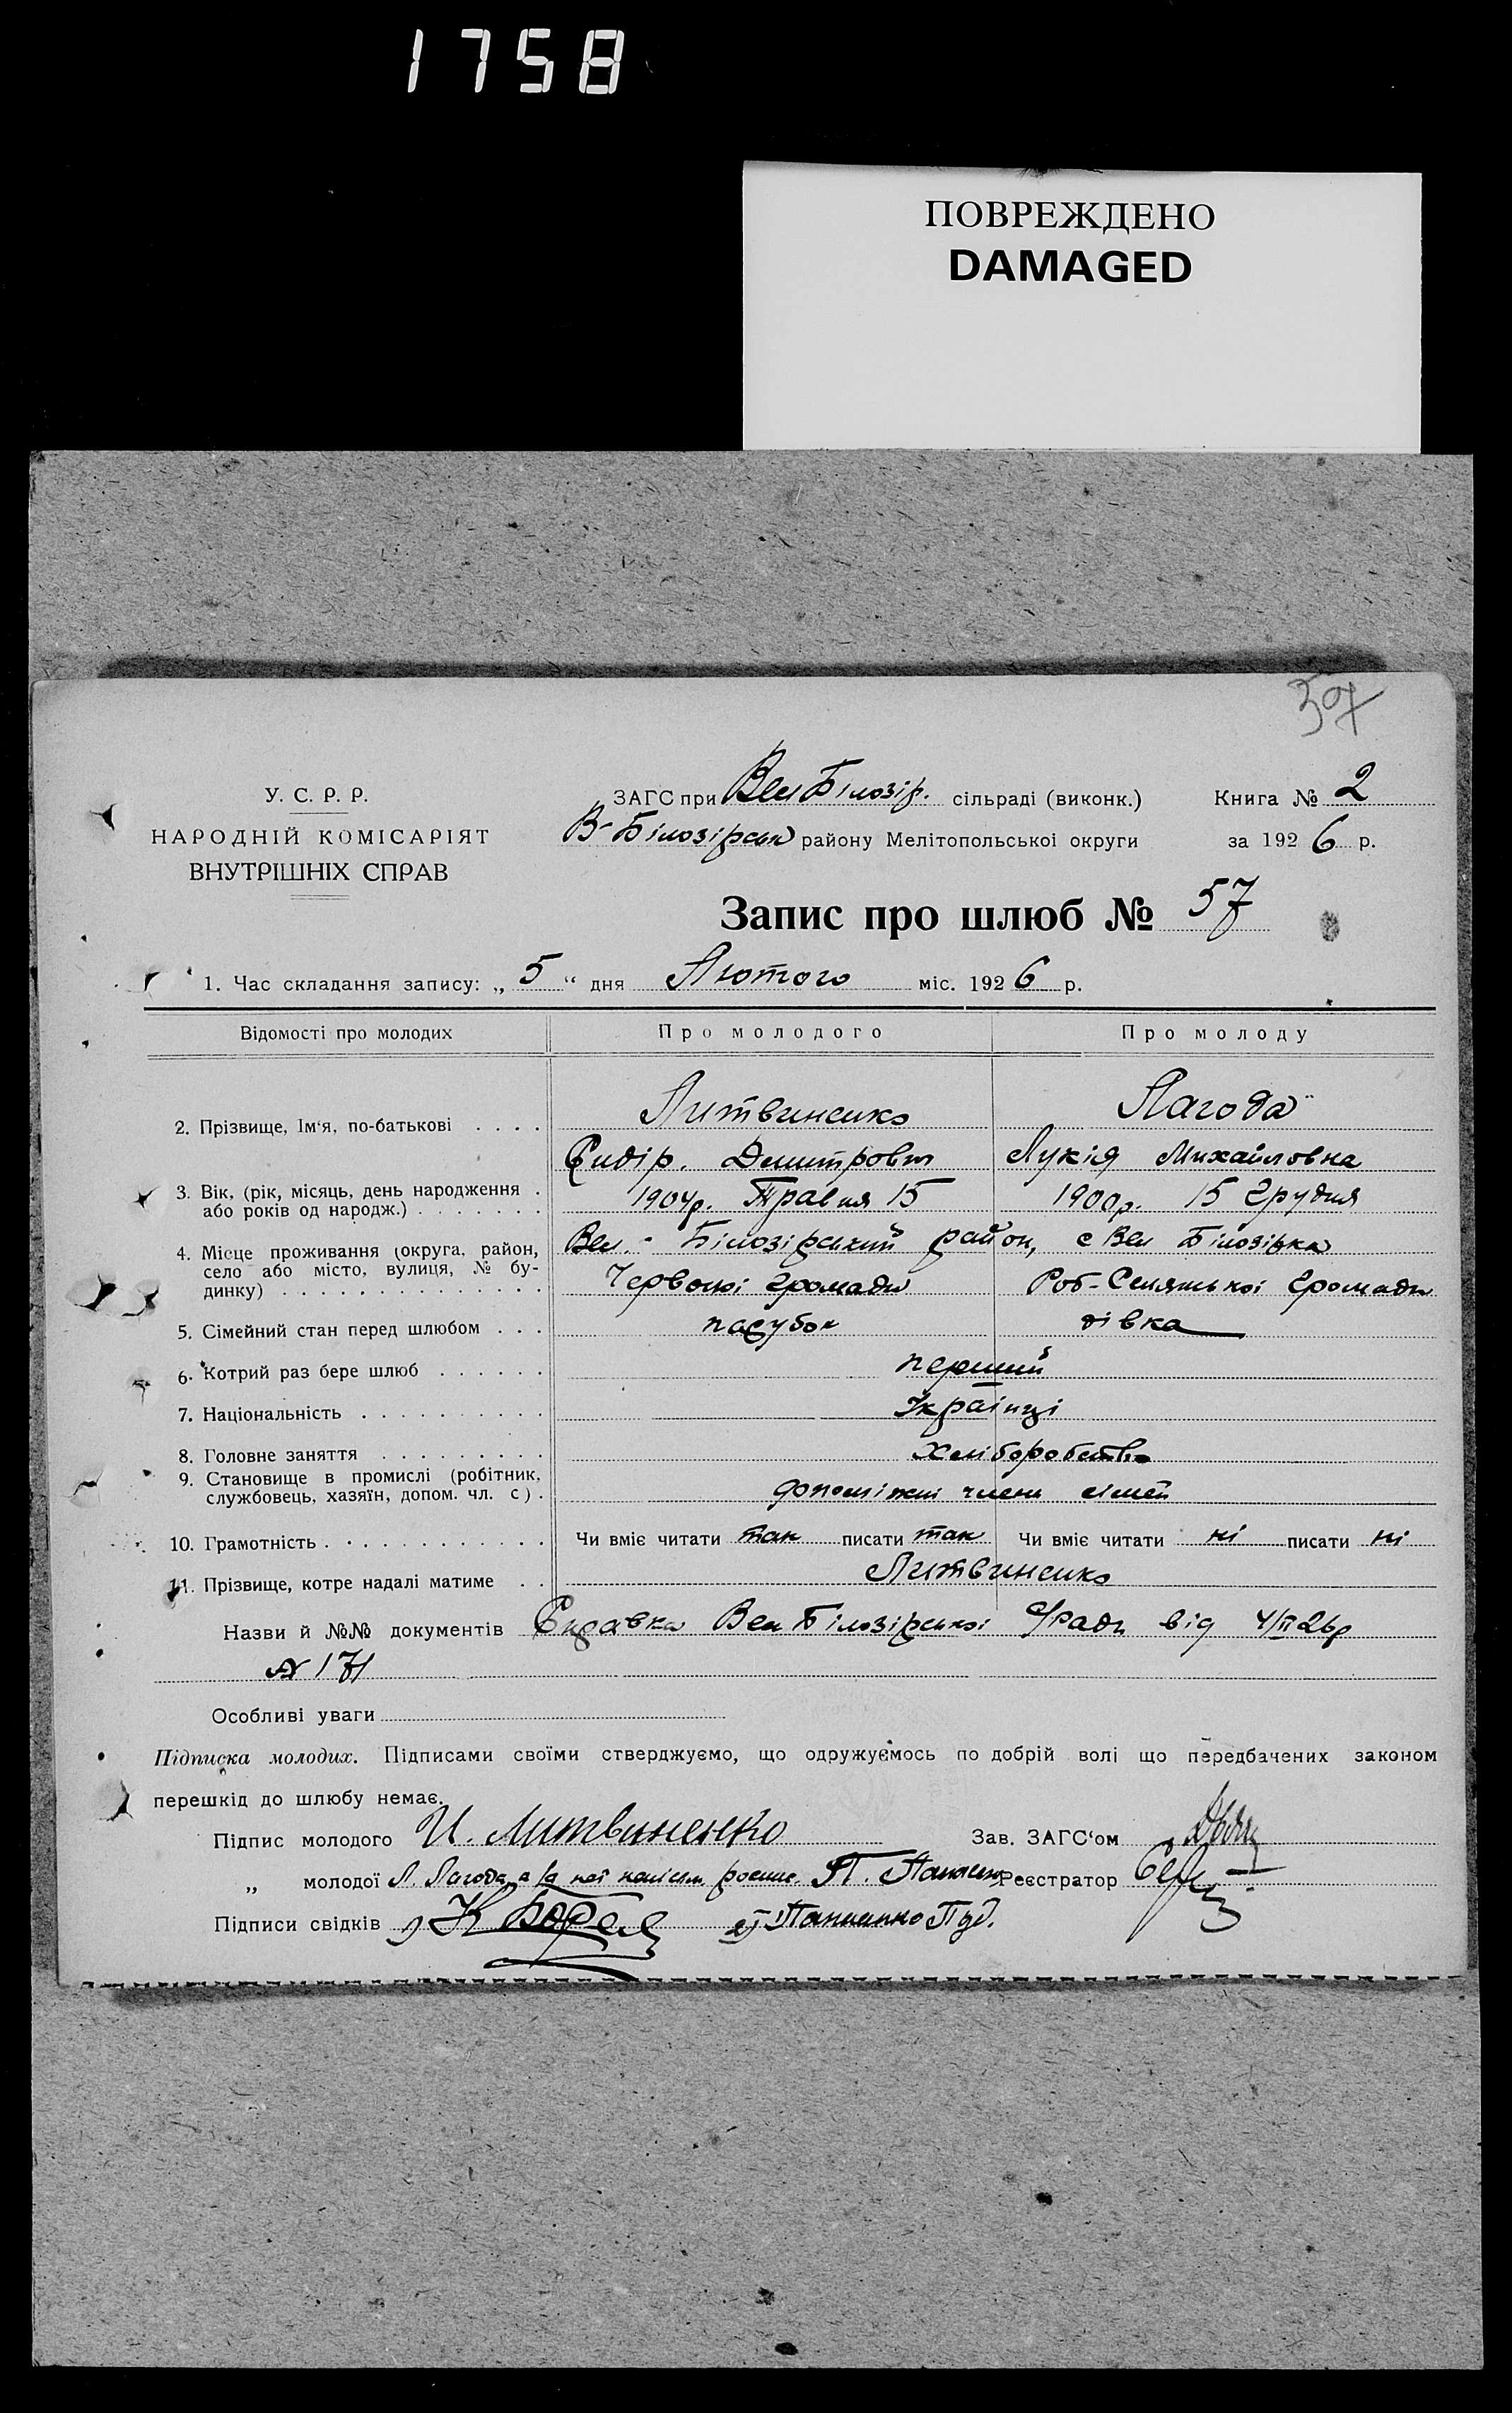 1758
ПОВРЕЖДЕНО
DAMAGED
57
У. С. Р. Р.
НАРОДНІЙ КОМІСАРІЯТ
ВНУТРІШНІХ СПРАВ
ЗАГС при Вел Білозір. сільраді (виконк.)
В-Білозірськ району Мелітопольської округи
Книга № 2
за 1926 р.
Запис про шлюб № 57
1. Час складання запису: „ 5 “ дня Лютого міс. 1926 р.
Відомості про молодих Про молодого Про молоду
2. Прізвище, Ім‘я, по-батькові . . . . Литвиненко Лагода
Сидір. Димитровт Лукія Михайловна
3. Вік, (рік, місяць, день народження . або років од народж.) . . . . . . . 1904р. Травня 15 1900р. 15 Грудня
4. Місце проживання (округа, район, Вел. - Білозірський район, с Вел Білозірка
село або місто, вулиця, № бу-
динку) . . . . . . . . . . . . . . Червоної громади Роб-Селянської Громади
5. Сімейний стан перед шлюбом . . . парубок дівка
6. Котрий раз бере шлюб . . . . . . перший
7. Національність . . . . . . . . . . Українці
8. Головне заняття . . . . . . . . . Хліборобство
9. Становище в промислі (робітник,
службовець, хазяїн, допом. чл. с) . допоміжні члени сімей
10. Грамотність . . . . . . . . . . . . Чи вміє читати так писати так Чи вміє читати ні писати ні
11. Прізвище, котре надалі матиме . . Литвиненко
Назви й №№ документів Справка Вел Білозірської С/ради від 4/II 26р
№ 171
Особливі уваги
Підписка молодих. Підписами своїми стверджуємо, що одружуємось по добрій волі що передбачених законом
перешкід до шлюбу немає.
Підпис молодого И. Литвиненко Зав. ЗАГС‘ом
„ молодої Л. Лагода, а за неї П. Реєстратор
Підписи свідків 1) К 2) Панченко